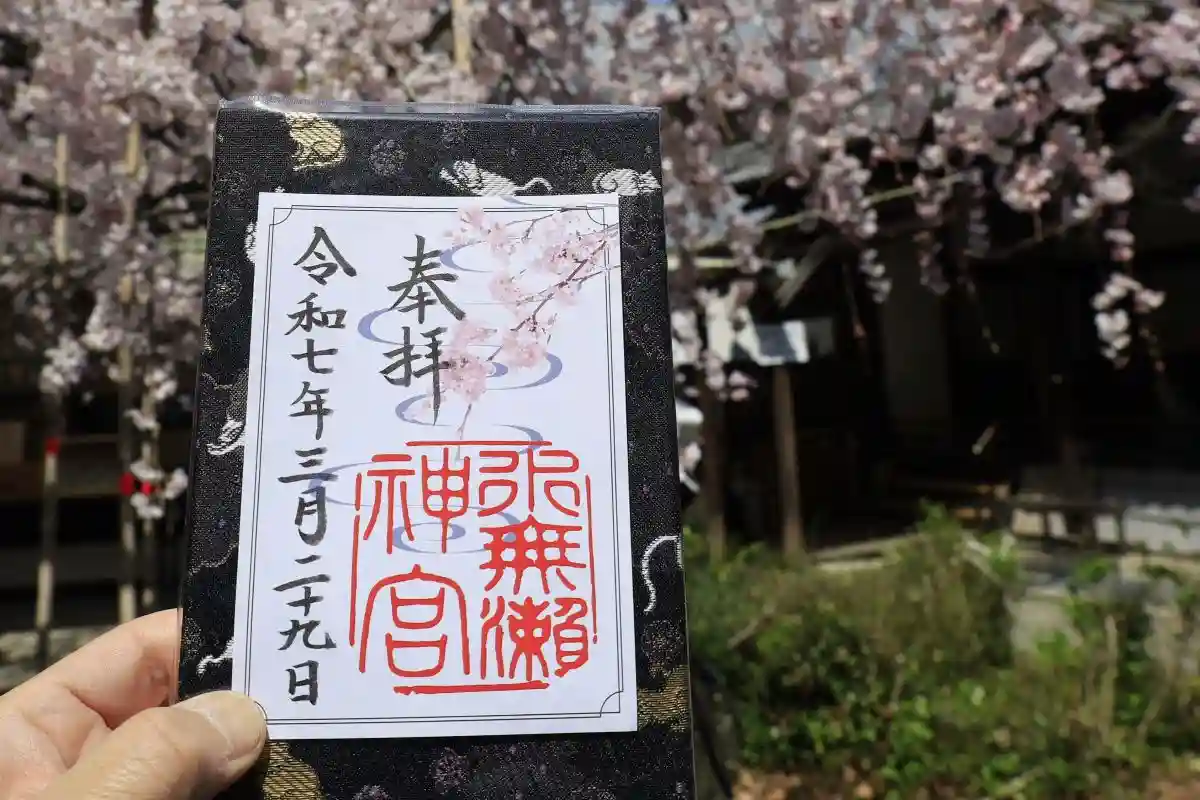 奉拝
水無瀬
神宮
令和七年三月二十九日